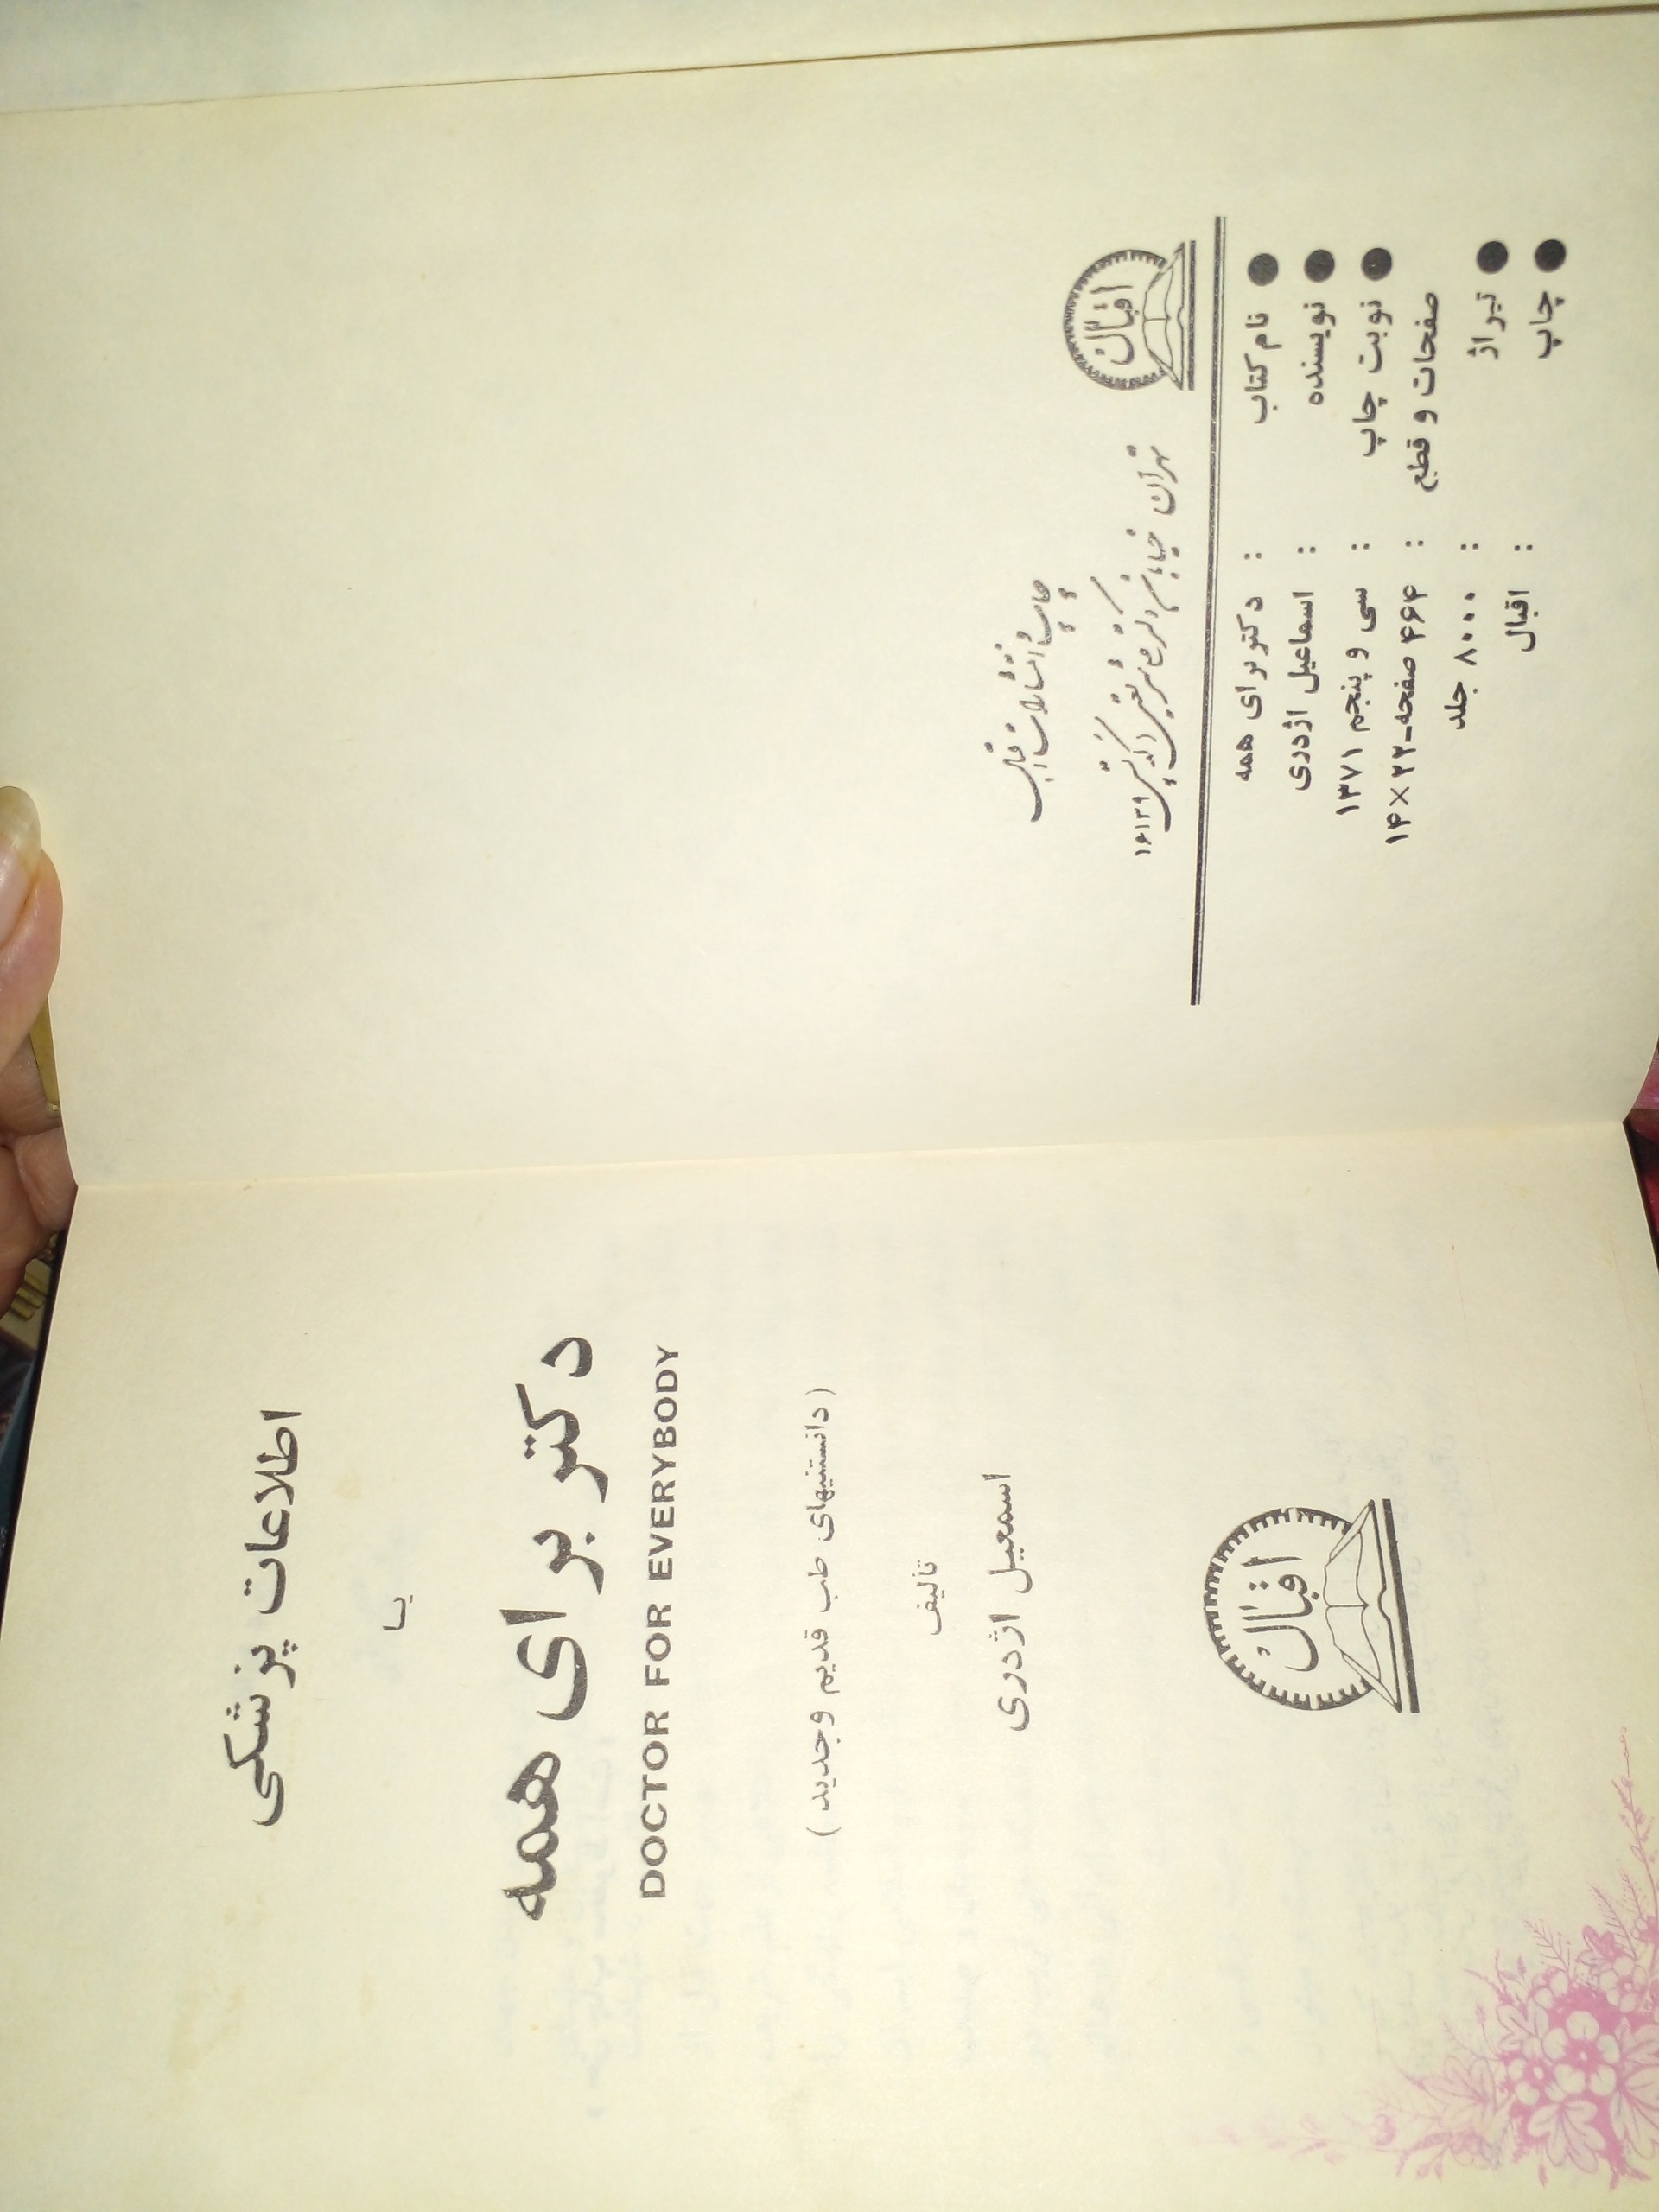 اطلاعات پزشکی
یا
دکتر برای همه
DOCTOR FOR EVERYBODY
(دانستنیهای طب قدیم وجدید)
تألیف
اسمعیل اژدری
اقبال
چاپ و انتشارات اقبال
اقبال
تهران خیابان دکتر علی شریعتی ۱۶۱۳۹
نام کتاب : دکتر برای همه
نویسنده : اسماعیل اژدری
نوبت چاپ : سی و پنجم ۱۳۷۱
صفحات و قطع : ۴۶۴ صفحه-۲۲×۱۴
تیراژ : ۸۰۰۰ جلد
چاپ : اقبال